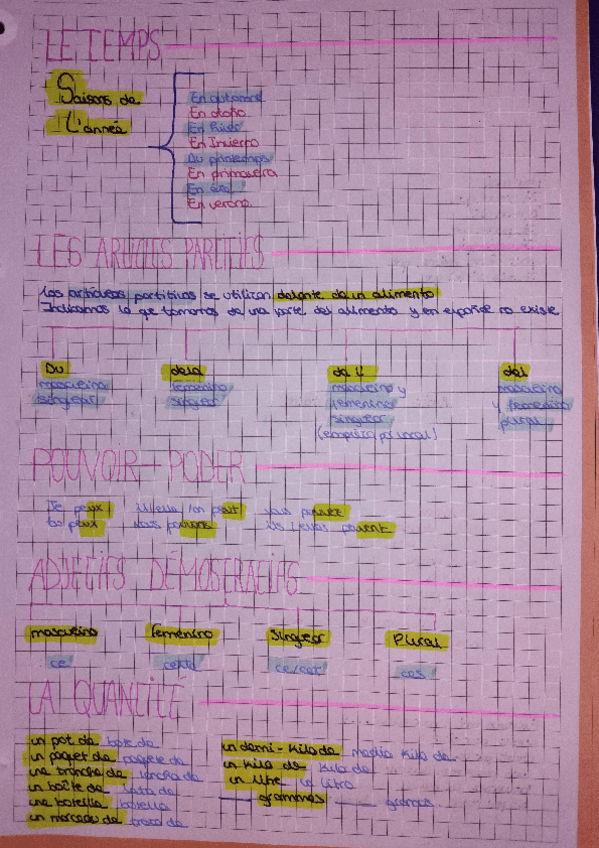 LE TEMPS
Saisons de
L'année
En automne
En otoño
En hiver
En Invierno
Du printemps
En primavera
En été
En verano
LES ARTICLES PARTITIFS
Los artículos partitivos se utilizan delante de un alimento
Indicamos lo que tomamos de una parte del alimento y en español no existe
Du
de la
de l'
des
masculino
femenino
masculino y
masculino
singular
singular
femenino
y femenino
singular
plural
(empieza por vocal)
POUVOIR - PODER
Je peux
Il/ella/on peut
vous pouvez
tu peux
nous pouvons
ils/elles peuvent
ADJECTIFS DÉMOSTRATIFS
masculino
femenino
Singular
Plural
ce
cette
ce/cet
ces
LA QUANTITÉ
un pot de bote de
un paquet de paquete de
une tranche de loncha de
un boîte de lata de
une botella botella
un morceau de trozo de
un demi-kilo de medio kilo de
un kilo de kilo de
un litre un litro
grammes gramos